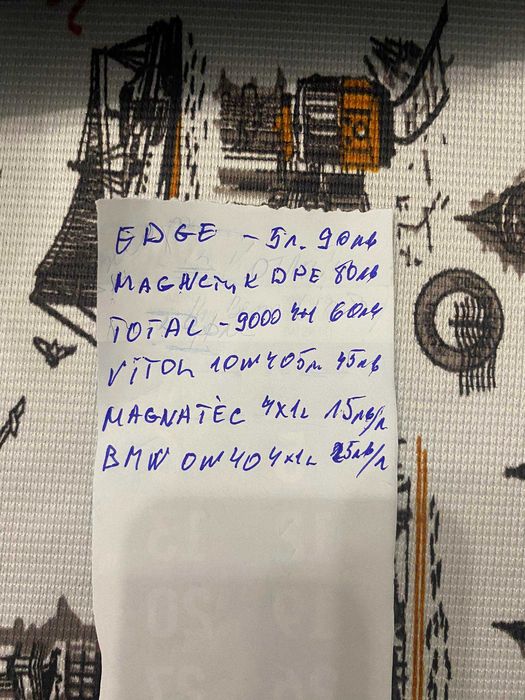 EDGE - 5л. 90лв
MAGNCтик DPE 80лв
TOTAL - 9000 4л 60лв
VITOL 10W40 5л 45лв
MAGNATEC 4x1л 15лв/л
BMW 0W40 4x1л 25лв/л